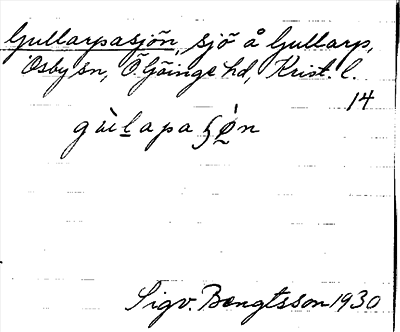 Gullarpasjön, sjö å Gullarp,
Osby sn, Ö. Göinge hd, Krist. l.
14
gùlapaʂø̀n
Sigv. Bengtsson 1930